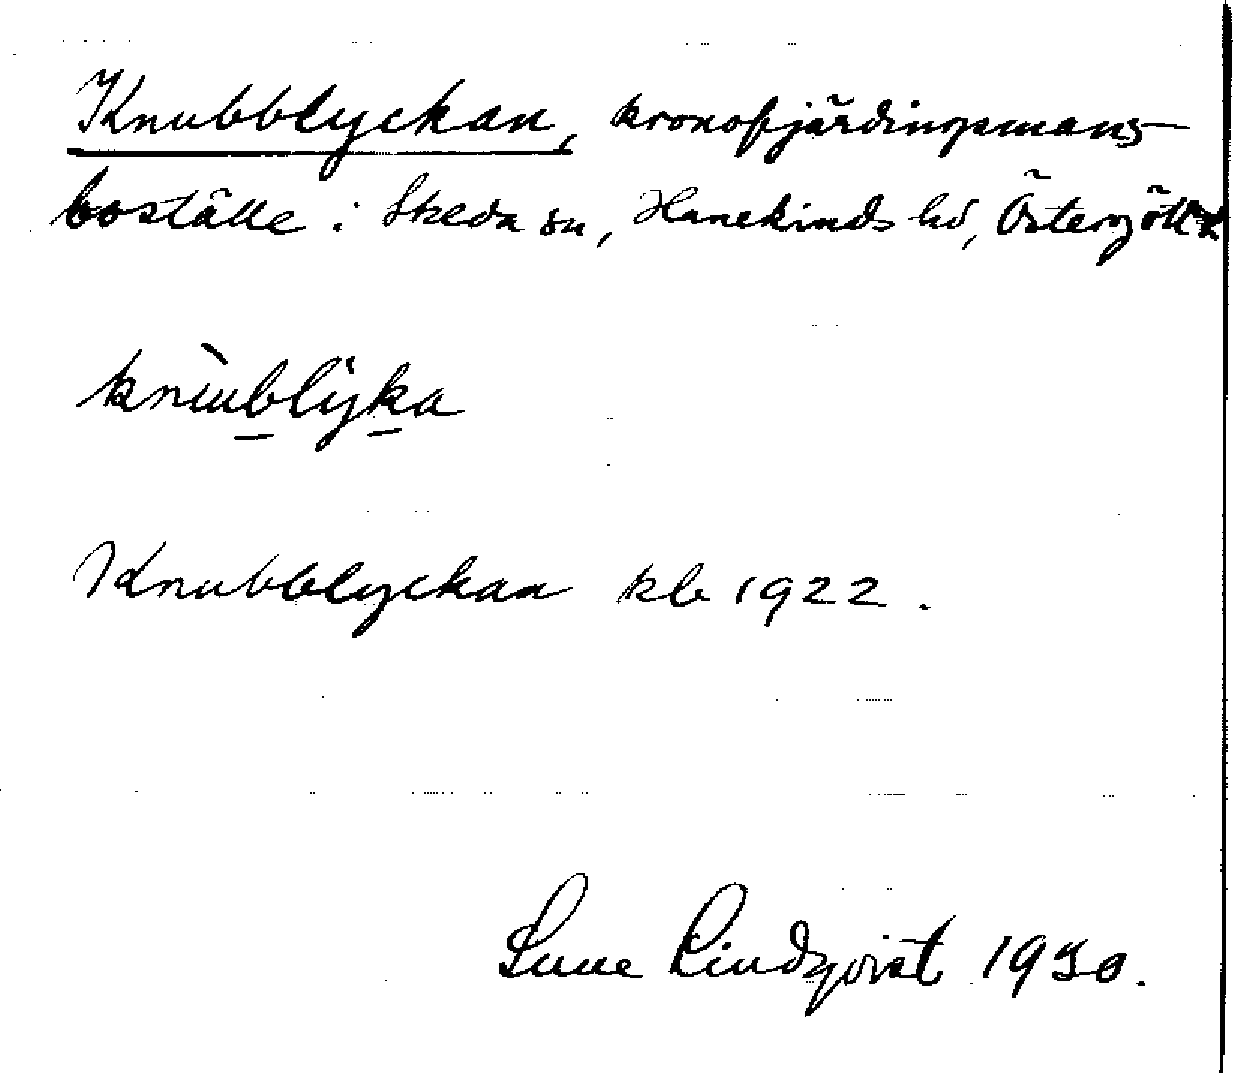 Knubblyckan, kronofjärdingsmans-
boställe i Skeda sn, Hanekinds hd, Östergötl.
knùblyka
Knubblyckan kb 1922.
Sune Lindqvist 1930.